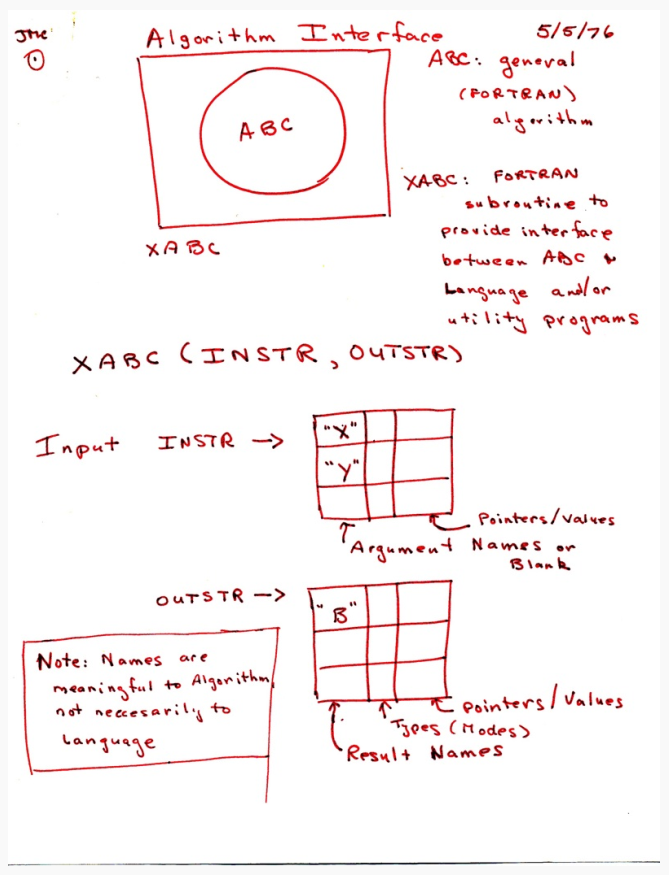 JMC
1
Algorithm Interface
5/5/76
ABC: general
(FORTRAN)
algorithm
ABC
XABC: FORTRAN
subroutine to
provide interface
between ABC &
Language and/or
utility programs
XABC
XABC (INSTR, OUTSTR)
Input INSTR →
"X"
"Y"
Pointers/Values
Argument Names or
Blank
OUTSTR →
"B"
Note: Names are
meaningful to Algorithm,
not neccesarily to
Language
Pointers/Values
Types (Modes)
Result Names